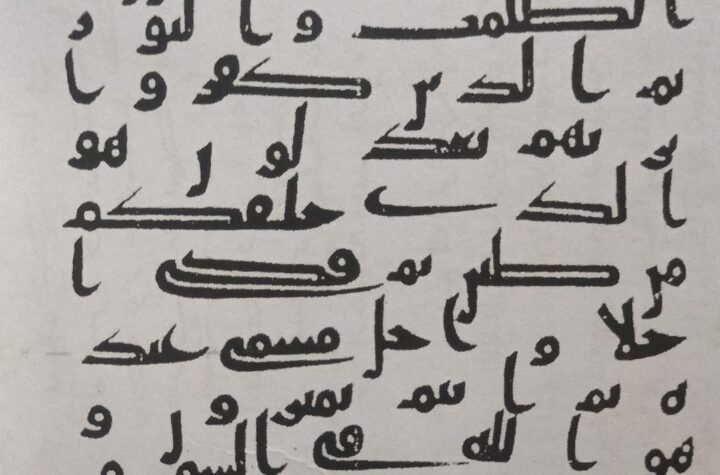 الظلمت والنور
ثم الذين كفروا
بربهم يعدلون هو
الذي خلقكم
من طين ثم قضى ا
جلا واجل مسمى عند
ه ثم انتم تمترون و
هو الله في السمو